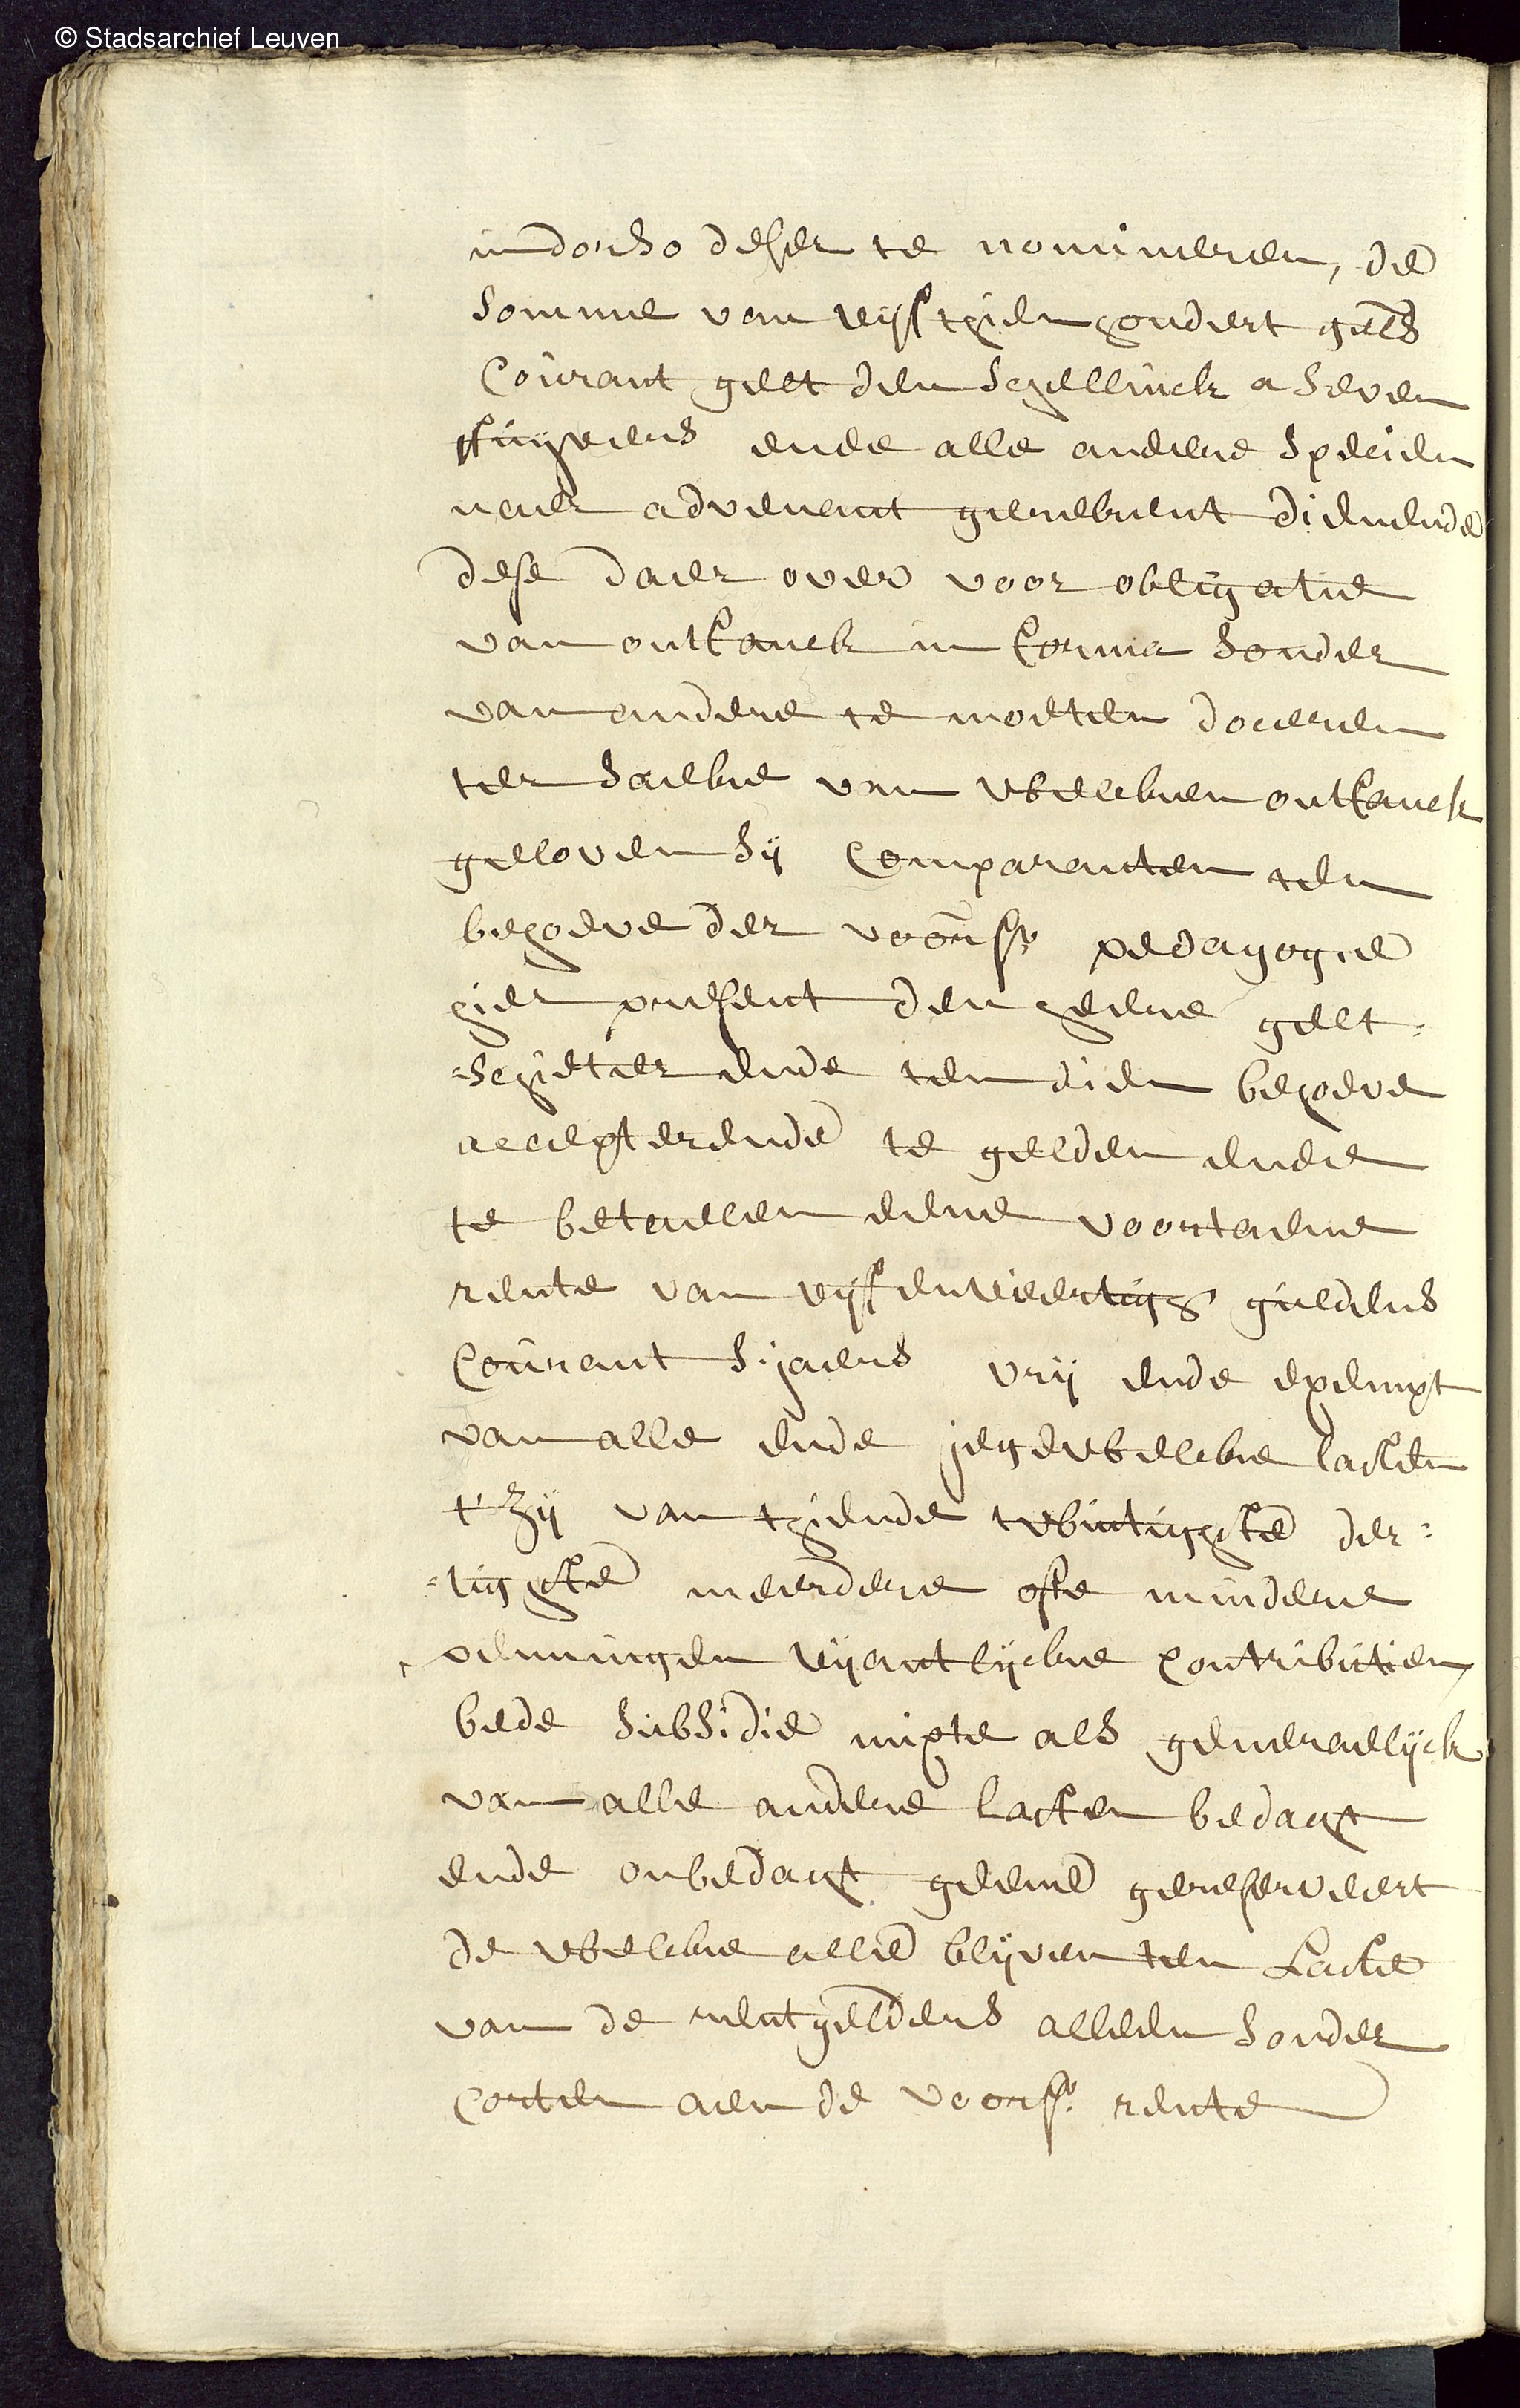 © Stadsarchief Leuven
in dorso deser te nomineren, de
somme van vijfthien hondert guls
Courant gelt den schellinck a seven
stuyvers ende alle andere specien
naer advenant gerekent dienende
dese daer over voor obligatie
van ontfanck in forma sonder
van andere te moeten doceren
ter saecke van welcken ontfanck
geloven sij Comparanten ten
behoeve der voors. pedagogie
hier present den heere gelt-
-schieter ende ten dien behoeve
accepterende te gelden ende
te betaelen eene voortaene
rente van vijfenveertigh guldens
Courant s'jaers vrij ende exempt
van alle ende jegewelcke lasten
t'zij van thiende twintighste der-
-tighste meerdere ofte mindere
penningen vijantlijcke contributien
bede subsidie mixte als generaelijck
van alle andere lasten bedacht
ende onbedacht geene gereserveert
de welcke alle blijven ten laste
van de rentgelders alleen sonder
corten aen de voors. rente